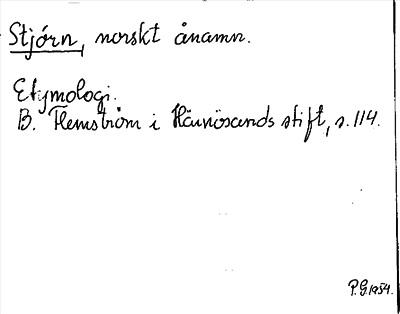 Stjórn, norskt ånamn.
Etymologi.
B. Flemström i Härnösands stift, s. 114.
P.G 1954.